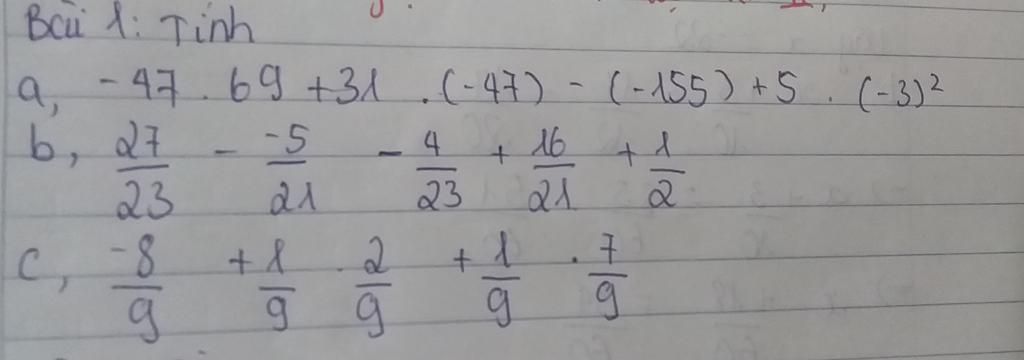 Bài 1: Tính
a, -47 . 69 + 31 . (-47) - (-155) + 5 . (-3)²
b, 27/23 - -5/21 - 4/23 + 16/21 + 1/2
c, -8/9 + 1/9 . 2/9 + 1/9 . 7/9